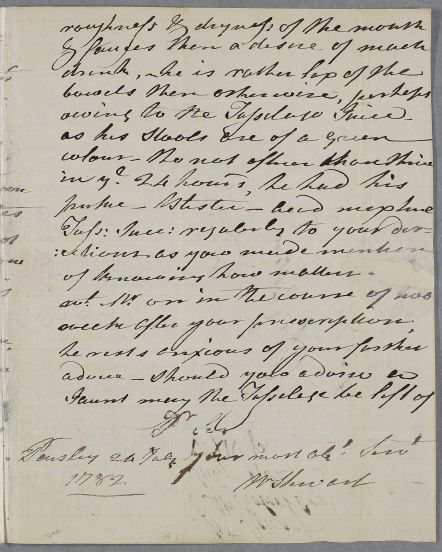 roughness & dryness of the mouth
& fauces then a desire of much
drink, he is rather lax of the
bowels then otherwise, perhaps
owing to the Tussilago Juice
as his Stools are of a green
colour – tho not oftner than thrice
in ye. 24 hours, he had his
purge – blister – and
Tuss: Succ: regularly to your dir-
:ections as you made mention
of knowing how matters
wt. Mr. in the course of two
weeks after your prescription,
he rests anxious of your further
advice – should you advise a
Jaunt may the Tussilago be left of
Dr. Sir
24 your most obt. Servt
1782
W Stewart